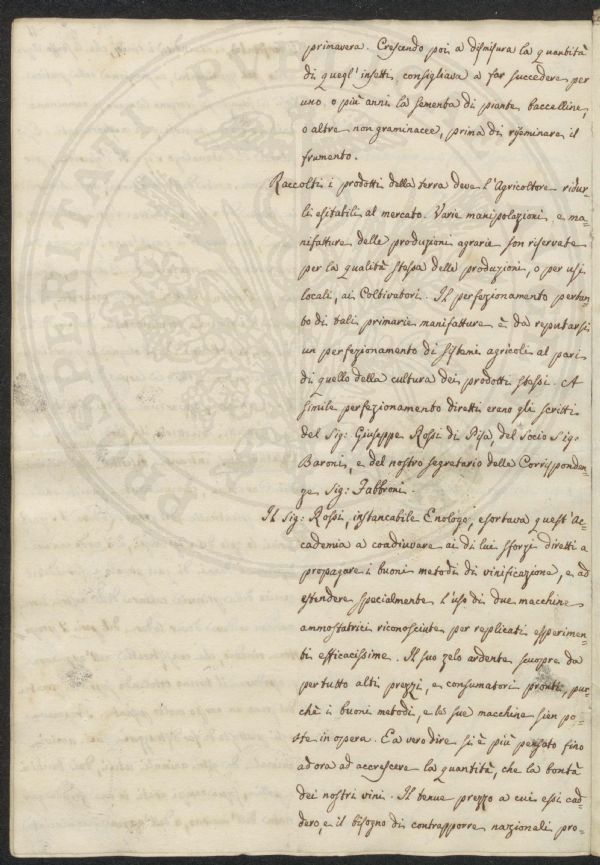 primavera. Crescendo poi a dismisura la quantità
di quegl'insetti, consigliava a far succedere per
uno, o più anni la sementa di piante baccelline,
o altre non graminacee, prima di riseminare il
frumento.
Raccolti i prodotti della terra deve l'Agricoltore ridur-
li esitabili al mercato. Varie manipolazioni, e ma=
nifatture delle produzioni agrarie son riservate
per la qualità stessa delle produzioni, o per usi
locali, ai Coltivatori. Il perfezionamento pertan=
to di tali primarie manifatture è da reputarsi
un perfezionamento di sistemi agricoli al pari
di quello della cultura dei prodotti stessi. A
simile perfezionamento diretti erano gli scritti
del Sig: Giuseppe Rossi di Pisa, del Socio Sig:
Baroni, e del nostro segretario della Corrisponden=
ze Sig: Fabbroni.
Il Sig: Rossi, instancabile Enologo, esortava quest'Ac=
cademia a coadiuvare ai di lui sforzi diretti a
propagare i buoni metodi di vinificazione, e ad
estendere specialmente l'uso di due macchine
ammostatrici riconosciute per replicati esperimen=
ti efficacissime. Il suo zelo ardente scuopre da
per tutto alti prezzi, e consumatori pronti, pur=
chè i buoni metodi, e le sue macchine sien po=
ste in opera. E a vero dire si è più pensato fino
ad ora ad accrescere la quantità, che la bontà
dei nostri vini. Il tenue prezzo a cui essi cad=
dero, e il bisogno di contrapporre nazionali pro=